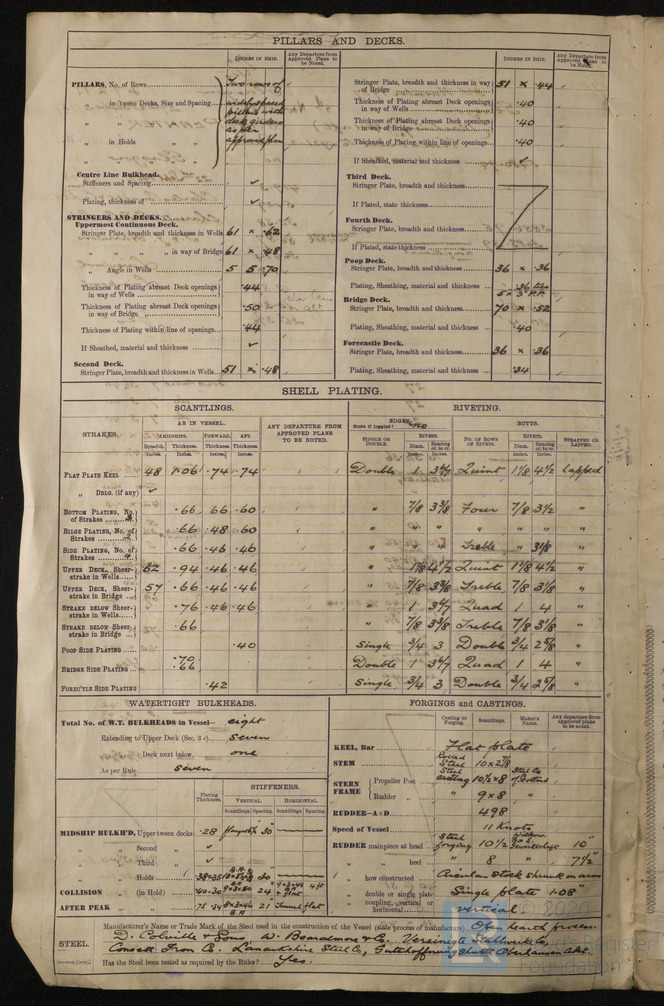 PILLARS AND DECKS.
INCHES IN SHIP.
Any Departure from Approved Plans to be Noted.
PILLARS, No. of Rows
Two rows of
in 'tween Decks, Size and Spacing
widely spaced
pillars with
deck girders
as per
in Holds
approved plan
Centre Line Bulkhead.
Stiffeners and Spacing ✓
Plating, thickness of ✓
STRINGERS AND DECKS.
Uppermost Continuous Deck.
Stringer Plate, breadth and thickness in Wells 61 × .62
" " " " in way of Bridge 61 × .48
" Angle in Wells 5 5 .70
Thickness of Plating abreast Deck openings in way of Wells .44
Thickness of Plating abreast Deck openings in way of Bridge .50
Thickness of Plating within line of openings .44
If Sheathed, material and thickness ✓
Second Deck.
Stringer Plate, breadth and thickness in Wells 51 × .48
INCHES IN SHIP.
Any Departure from Approved Plans to be Noted.
Stringer Plate, breadth and thickness in way of Bridge 51 × .44
Thickness of Plating abreast Deck openings in way of Wells .40
Thickness of Plating abreast Deck openings in way of Bridge .40
Thickness of Plating within line of openings .40
If Sheathed, material and thickness ✓
Third Deck.
Stringer Plate, breadth and thickness
If Plated, state thickness
Fourth Deck.
Stringer Plate, breadth and thickness
If Plated, state thickness
Poop Deck.
Stringer Plate, breadth and thickness 36 × .36
Plating, Sheathing, material and thickness .36
Bridge Deck.
Stringer Plate, breadth and thickness 70 × .52
Plating, Sheathing, material and thickness .40
Forecastle Deck.
Stringer Plate, breadth and thickness 36 × .36
Plating, Sheathing, material and thickness .34
SHELL PLATING.
SCANTLINGS.
RIVETING.
STRAKES.
AS IN VESSEL.
ANY DEPARTURE FROM APPROVED PLANS TO BE NOTED.
EDGES
State if joggled? no
BUTTS.
AMIDSHIPS. FORWARD. AFT.
Breadth. Thickness. Thickness. Thickness.
Inches. Inches. Inches. Inches.
SINGLE OR DOUBLE. RIVETS. Diam. Spacing cr. to cr. NO. OF ROWS OF RIVETS. RIVETS. Diam. Spacing cr. to cr. STRAPPED OR LAPPED.
FLAT PLATE KEEL 48 1.06 .74 .74 Double 1 Quint 1⅛ 4½ Lapped
" DBLG. (if any) ✓
BOTTOM PLATING, No. of Strakes .66 .66 .60 " ⅞ 3⅜ Four ⅞ 3½ "
BILGE PLATING, No. of Strakes .66 .48 .60 " " " " " " "
SIDE PLATING, No. of Strakes .66 .46 .46 " " " Treble " 3⅛ "
UPPER DECK, Sheer-strake in Wells 82 .94 .46 .46 " 1⅛ 4½ Quint 1⅛ 4½ "
UPPER DECK, Sheer-strake in Bridge 57 .66 .46 .46 " ⅞ 3⅜ Treble ⅞ 3⅛ "
STRAKE BELOW Sheer-strake in Wells .76 .46 .46 " 1 Quad 1 4 "
STRAKE BELOW Sheer-strake in Bridge .66 " ⅞ 3⅜ Treble ⅞ 3⅛ "
POOP SIDE PLATING .40 Single ¾ 3 Double ¾ 2⅝ "
BRIDGE SIDE PLATING .70 .66 Double 1 Quad 1 4 "
FOREC'TLE SIDE PLATING .42 Single ¾ 3 Double ¾ 2⅝ "
WATERTIGHT BULKHEADS.
Total No. of W.T. BULKHEADS in Vessel— eight
Extending to Upper Deck (Sec. 3) seven
" Deck next below one
As per Rule seven
STIFFENERS.
Plating Thickness.
VERTICAL. HORIZONTAL.
Scantlings. Spacing. Scantlings. Spacing.
MIDSHIP BULKH'D, Upper tween decks .28 30
" " Second " ✓
" " Third " ✓
" " Holds 30
COLLISION " (in Hold) .40 .30 24 4 ft
AFTER PEAK 8×3×46 21 Tunnel flat
FORGINGS AND CASTINGS.
Casting or Forging. Scantlings. Maker's Name. Any departure from approved plans to be noted.
KEEL, Bar Flat plate
STEM Rolled Steel 10 × 2⅞
STERN FRAME Propeller Post Steel casting 10½ × 8 Steel Co of Scotland
Rudder " " 9 × 8 "
RUDDER—A×D 498
Speed of Vessel 11 Knots
RUDDER mainpiece at head Steel forging 10½ 10"
" " heel " 8 " 7½"
" how constructed Circular stock shrunk on arms
" double or single plate Single plate 1.08"
" coupling, vertical or horizontal vertical
STEEL.
Manufacturer's Name or Trade Mark of the Steel used in the construction of the Vessel (state process of manufacture). Open hearth process.
D. Colville & Sons W. Beardmore & Co. Vereinigte Stahlwerke,
Consett Iron Co. Lanarkshire Steel Co, Gutehoffnungshutte Oberhausen Akt.
Has the Steel been tested as required by the Rules? Yes.
© 2020
Lloyd's Register
Foundation